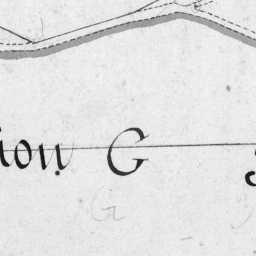 ion G
G